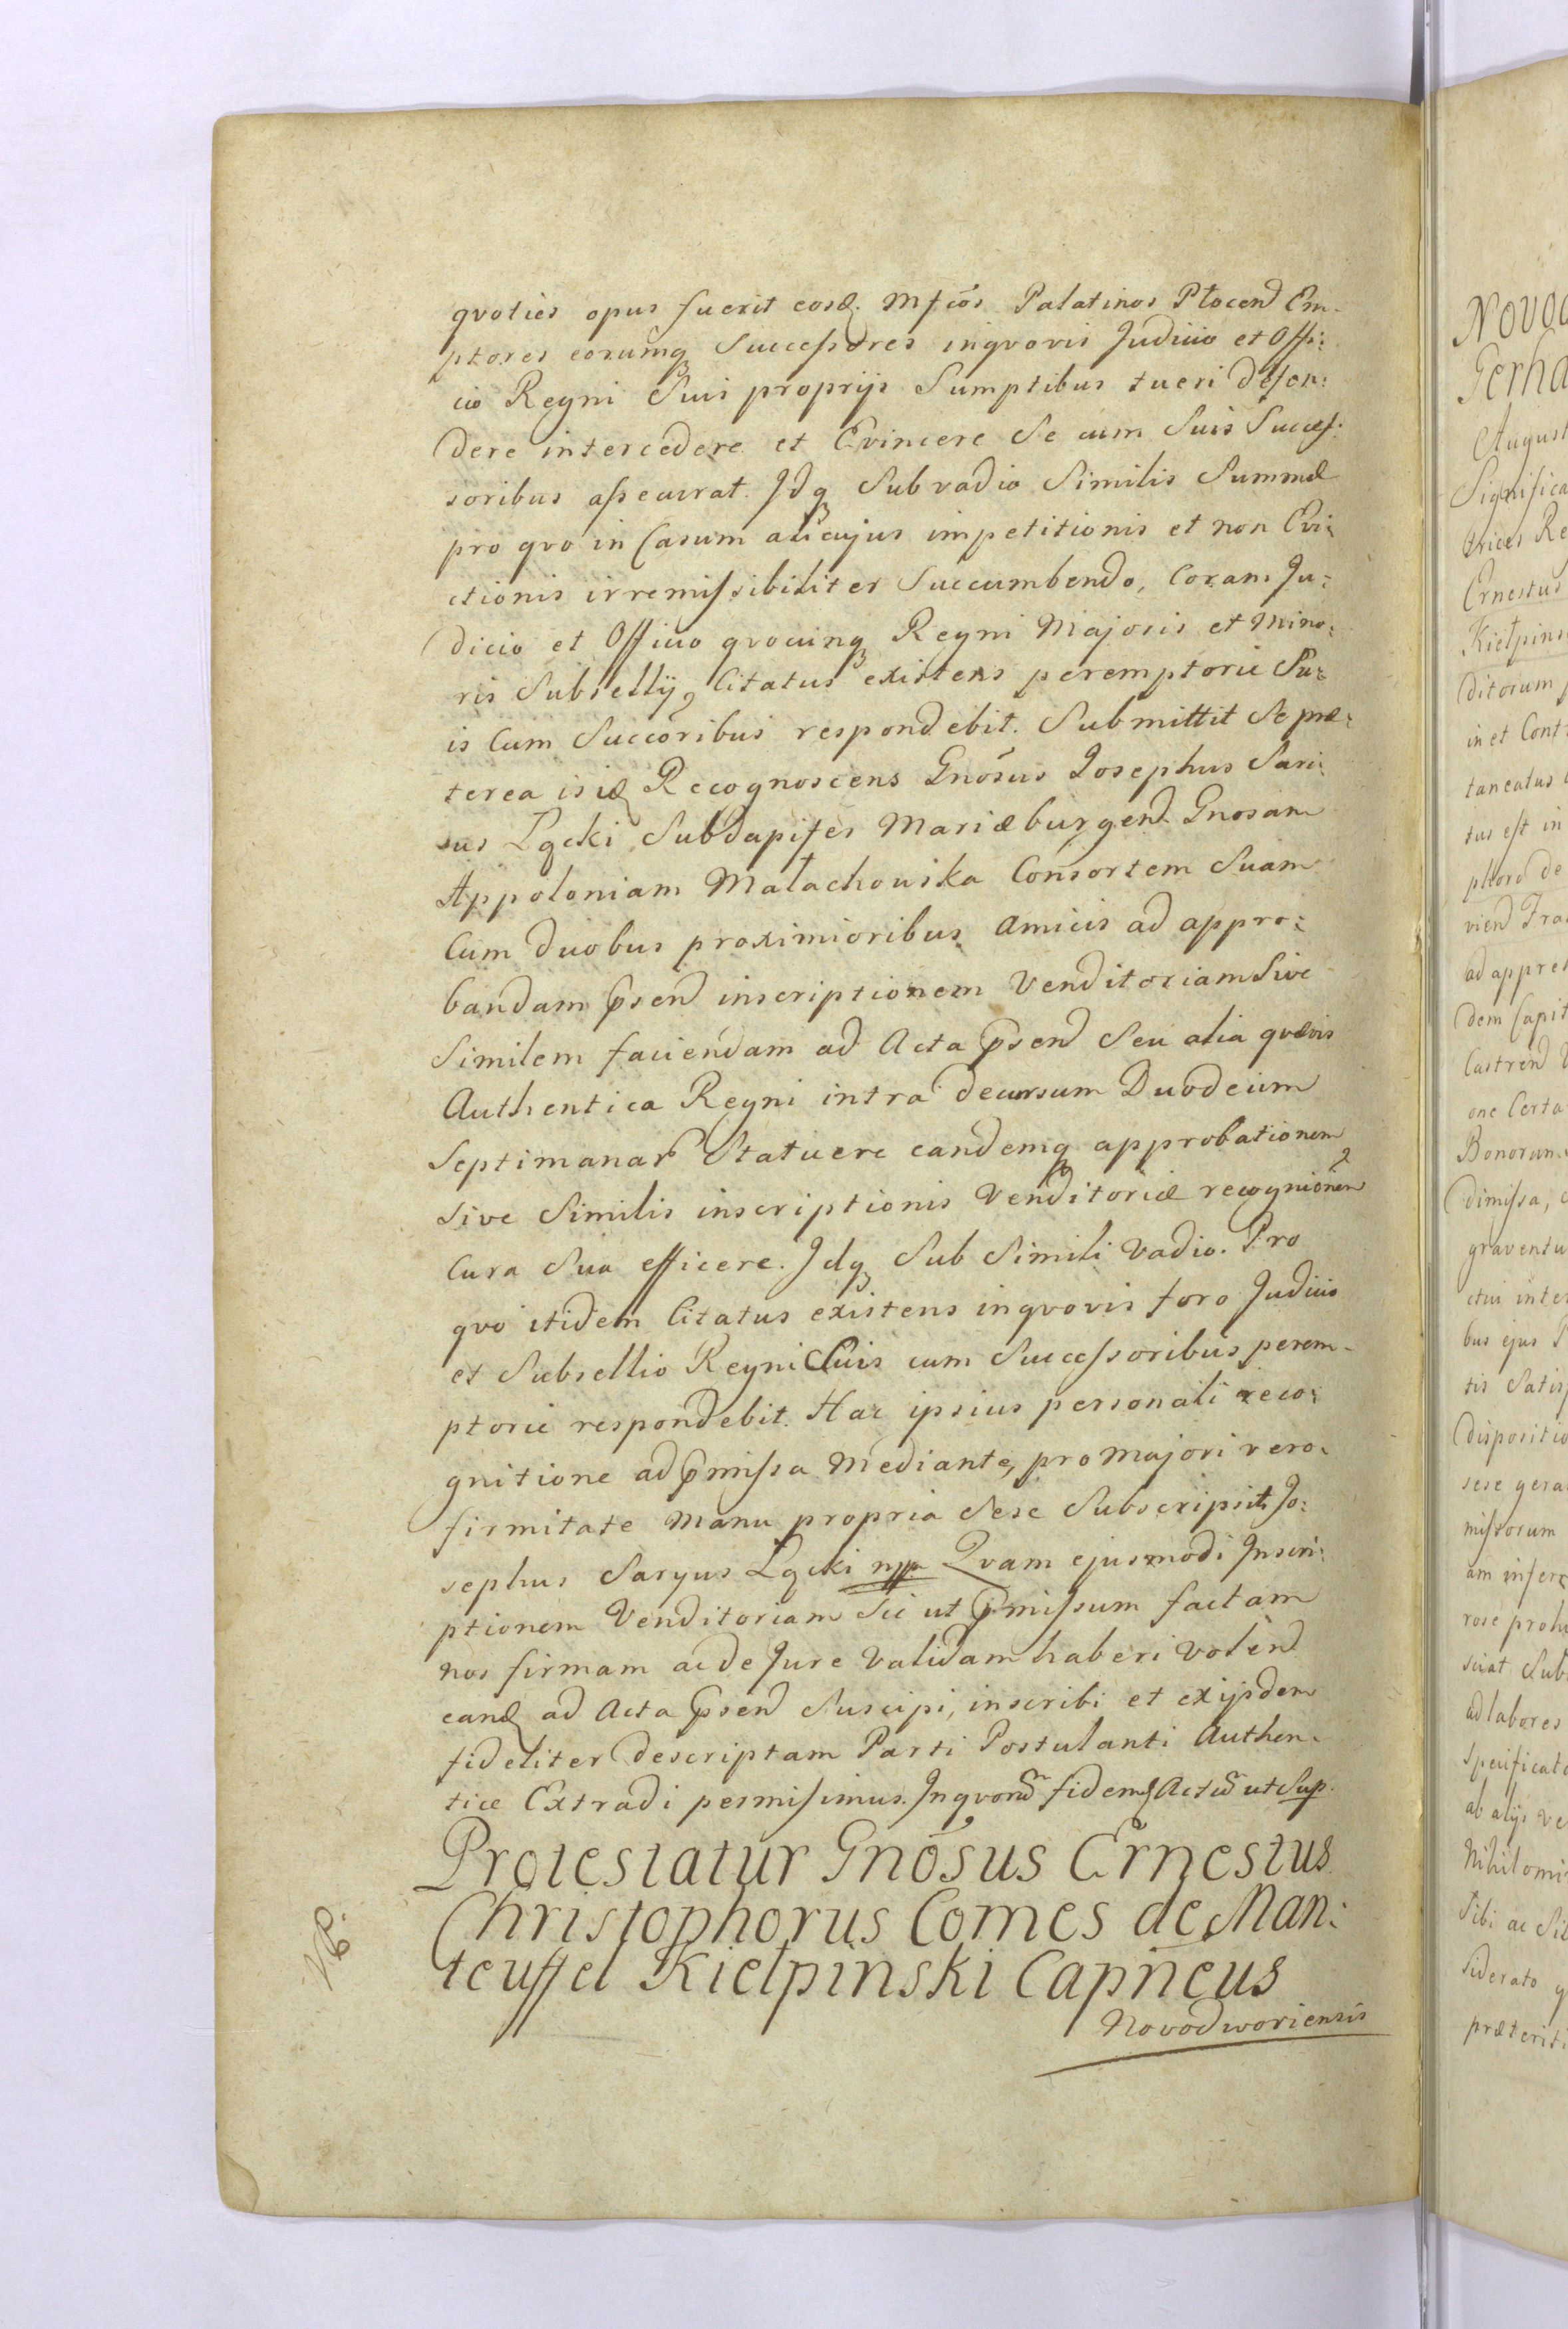 qvoties opus fuerit eosd. Mfcos Palatinos Płocend Em-
ptores eorumq Successores inqvovis Judicio et Offi:
cio Regni Suis proprijs Sumptibus tueri defen:
dere intercedere et Evincere Se cum Suis Succes:
soribus assecurat. Idq Sub vadio Similis Summæ
pro qvo in Casum alicujus impetitionis et non Evi:
ctionis irremissibiliter Succumbendo, Coram Ju:
dicio et Officio qvocunq Regni Majoris et Mino:
ris Subsellij, Citatus existens peremptorie Su:
is Cum Succoribus respondebit. Submittit Se præ:
terea is id Recognoscens Gnosus Josephus Sari:
us Łącki Subdapifer Mariæburgend Gnosam
Appoloniam Małachowska Consortem Suam
Cum duobus proximioribus Amicis ad appro:
bandam psend inscriptionem Venditoriam Sive
Similem faciendam ad Acta psend Seu alia qvævis
Authentica Regni intra decursum Duodecim
Septimanar Statuere eandemq approbationem
Sive Similis inscriptionis Venditoriæ recognionem
Cura Sua efficere. Idq Sub Simili Vadio. Pro
qvo itidem Citatus existens inqvovis foro Judicio
et Subsellio Regni Suis cum Successoribus perem-
ptorie respondebit. Hac ipsius personali reco:
gnitione ad pmissa Mediante, pro majori vero
firmitate Manu propria Sese Subscripsit Jo:
sephus Saryus Łącki mpp Qvam ejusmodi Inscri:
ptionem Venditoriam Sic ut pmissum factam
nos firmam ac de Jure Validam haberi volend
eand ad Acta psend Suscipi, inscribi et exijsdem
fideliter descriptam Parti Postulanti Authen-
tice Extradi permisimus. In qvor fidem Actu ut Sup.
Protestatur Gnosus Ernestus
Christophorus Comes de Man:
teuffel Kiełpinski Capneus
Novodworiensis
Novod
Gerha
August
Significa
trices Re
Ernestus
Kiełpins
ditorum
in et Cont
taneatus
tus est in
viend Tra
ad appre
dem Capit
Castrend
one Certa
Bonorum
dimissa,
graventu
ctui inter
bus ejus
tis Satis
dispositio
sese gera
missorum
am infer
rose prohi
sciat Sub
ad labores
Specificat
ab alijs ve
Nihilomi
Sibi ac Si
Siderato q
præteriti